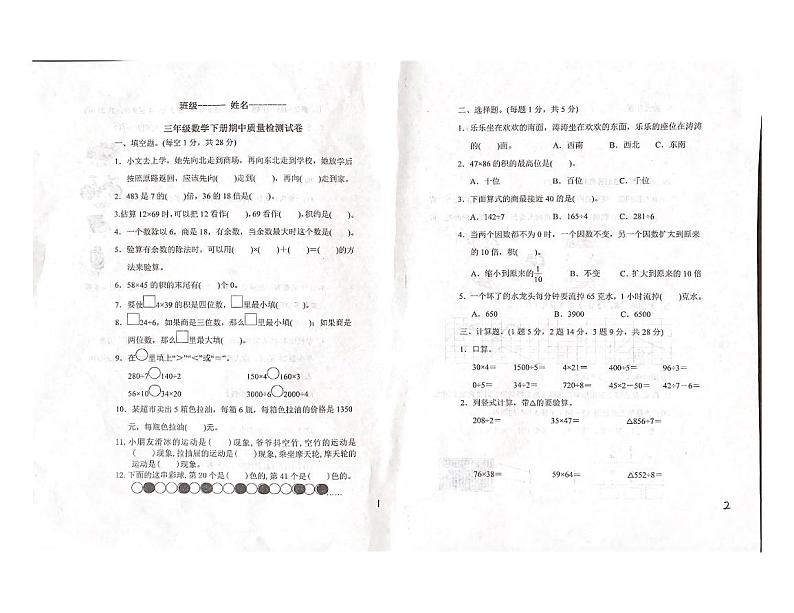 班级------ 姓名--------
三年级数学下册期中质量检测试卷
一、填空题。(每空1分，共28分)
1、小文去上学，她先向北走到商场，再向东北走到学校，她放学后
按照原路返回，应该先向( )走到( )，再向( )走到家。
2、483是7的( )倍，36的18倍是( )。
3.估算12×69时，可以把12看作( )，69看作( )，积约是( )。
4、一个数除以6，商是18，有余数，当余数最大时这个数是( )。
5、验算有余数的除法时，可以用( )×( )＋( )＝( )的方
法来验算。
6、58×45的积的末尾有( )个0。
7、要使□4×39的积是四位数，□里最小填( )。
8、□24÷6，如果商是三位数，那么□里最小填( )；如果商是
两位数，那么□里最大填( )。
9、在○里填上“>”“<”或“=”。
280÷7○140÷2 150×4○160×3
56×10○34×20 3000÷6○2000÷4
10、某超市卖出5箱色拉油，每箱6瓶，每箱色拉油的价格是1350
元，每瓶色拉油( )元。
11、小朋友滑冰的运动是( )现象，爷爷抖空竹，空竹的运动是
( )现象，拉抽屉的运动是( )现象，乘坐摩天轮，摩天轮的
运动是( )现象。
12、下面的这串彩球，第20个是( )色的，第41个是( )色的。
……
1
二、选择题。(每题1分，共5分)
1、乐乐坐在欢欢的南面，涛涛坐在欢欢的东面，乐乐的座位在涛涛
的( )面。 A、西南 B、西北 C、东南
2、47×86的积的最高位是( )。
A、十位 B、百位 C、千位
3、下面算式的商最接近40的是( )。
A、142÷7 B、165÷4 C、281÷6
4、当两个因数都不为0时，一个因数不变，另一个因数扩大到原来
的10倍，积( )。
A、缩小到原来的1/10 B、不变 C、扩大到原来的10倍
5、一个坏了的水龙头每分钟要流掉65克水，1小时流掉( )克水。
A、650 B、3900 C、6500
三、计算题。(1题5分，2题14分，3题9分，共28分)
1、口算。
30×4= 1500÷5= 4×21= 400÷5= 96÷3=
0÷5= 34÷2= 720÷8= 45×2－50= 42÷7－6=
2、列竖式计算，带△的要验算。
208÷2= 35×47= △856÷7=
76×38= 59×64= △552÷8=
2